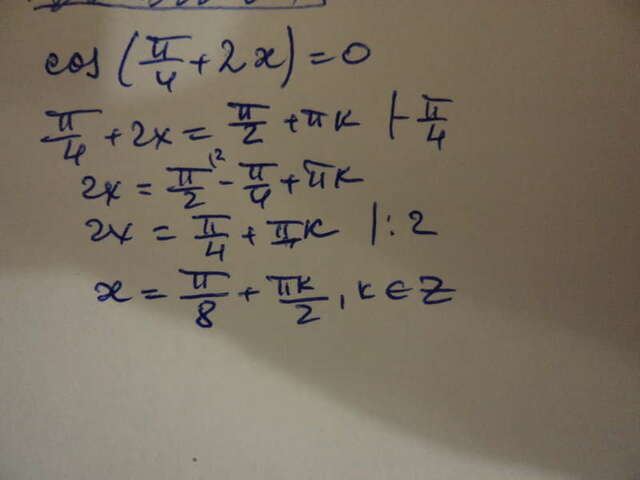 cos(π/4 + 2x) = 0
π/4 + 2x = π/2 + πk |-π/4
2x = π/2 \2 - π/4 + πk
2x = π/4 + πk |:2
x = π/8 + πk/2, k ∈ Z